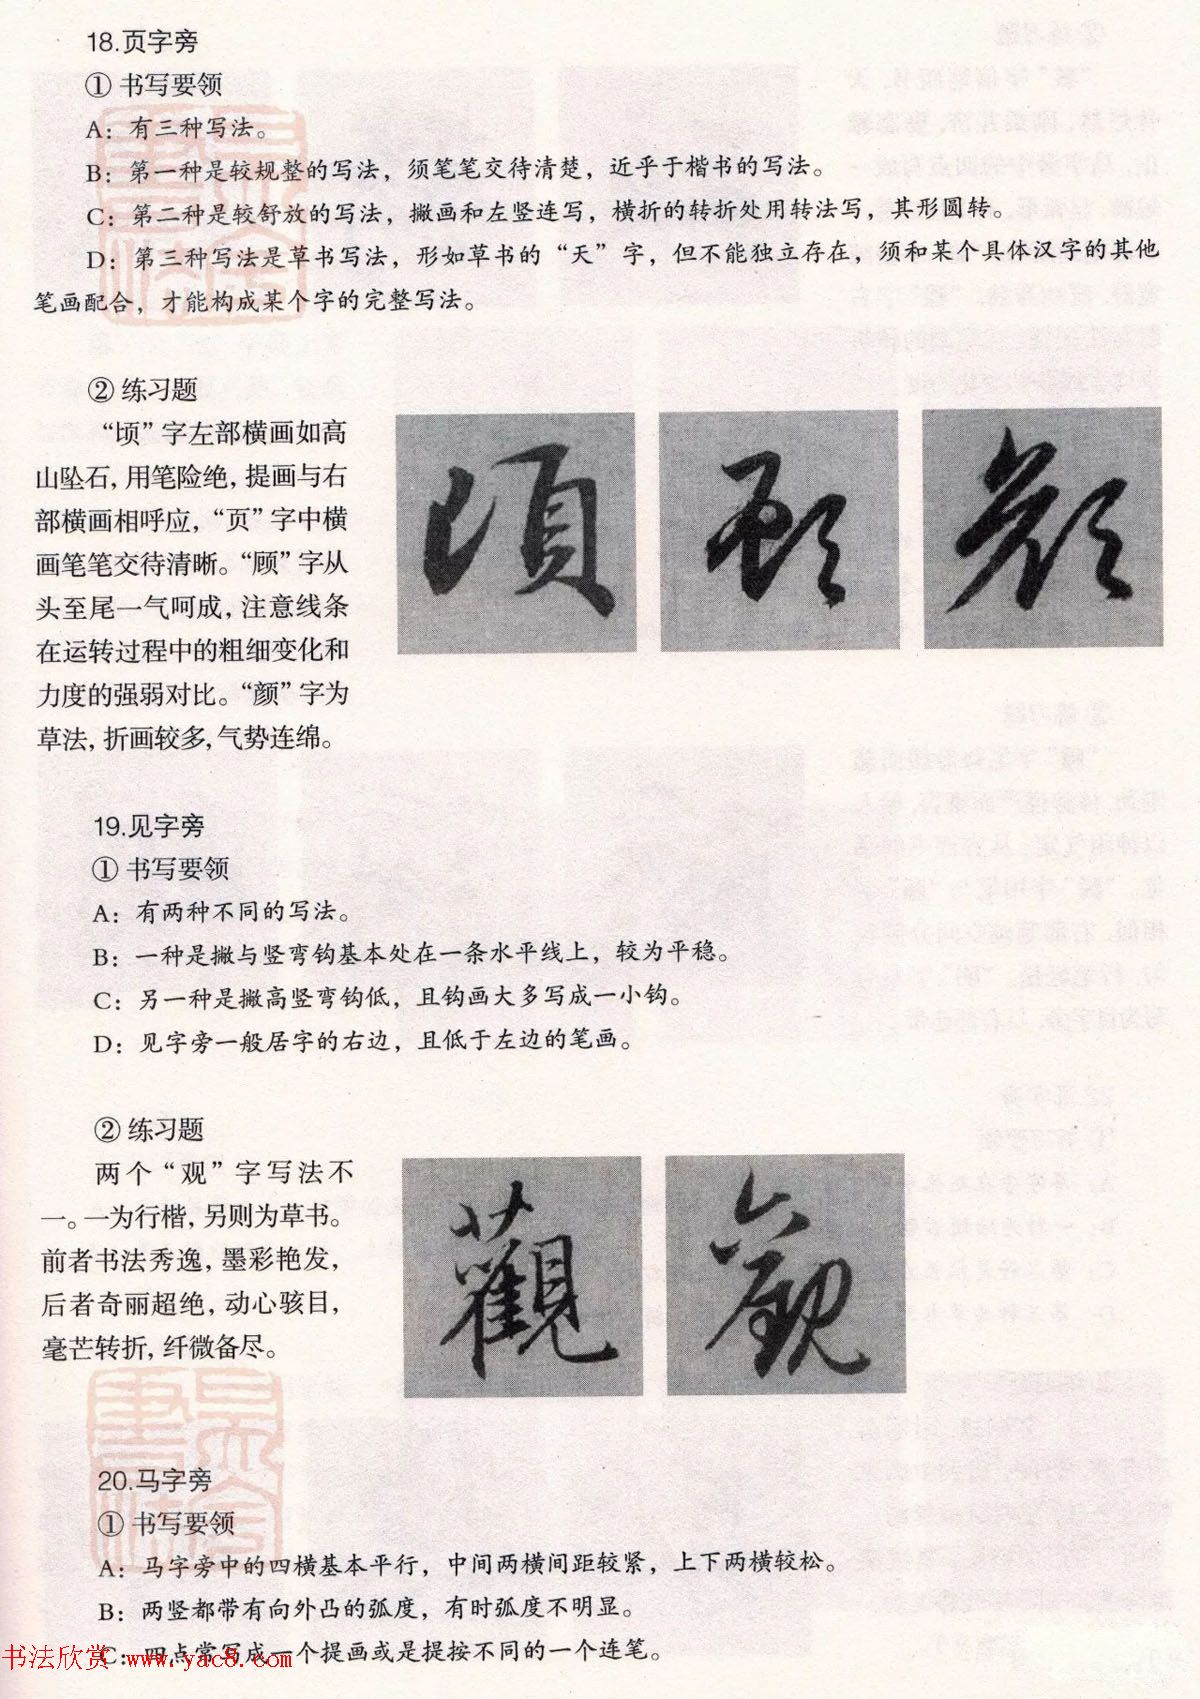 18.页字旁
① 书写要领
A：有三种写法。
B：第一种是较规整的写法，须笔笔交待清楚，近乎于楷书的写法。
C：第二种是较舒放的写法，撇画和左竖连写，横折的转折处用转法写，其形圆转。
D：第三种写法是草书写法，形如草书的“天”字，但不能独立存在，须和某个具体汉字的其他
笔画配合，才能构成某个字的完整写法。
② 练习题
“顷”字左部横画如高
山坠石，用笔险绝，提画与右
部横画相呼应，“页”字中横
画笔笔交待清晰。“顾”字从
头至尾一气呵成，注意线条
在运转过程中的粗细变化和
力度的强弱对比。“颜”字为
草法，折画较多，气势连绵。
頃 顾 颜
19.见字旁
① 书写要领
A：有两种不同的写法。
B：一种是撇与竖弯钩基本处在一条水平线上，较为平稳。
C：另一种是撇高竖弯钩低，且钩画大多写成一小钩。
D：见字旁一般居字的右边，且低于左边的笔画。
② 练习题
两个“观”字写法不
一。一为行楷，另则为草书。
前者书法秀逸，墨彩艳发，
后者奇丽超绝，动心骇目，
毫芒转折，纤微备尽。
觀 觀
20.马字旁
① 书写要领
A：马字旁中的四横基本平行，中间两横间距较紧，上下两横较松。
B：两竖都带有向外凸的弧度，有时弧度不明显。
C：四点常写成一个提画或是提按不同的一个连笔。
书法欣赏 www.yac8.com